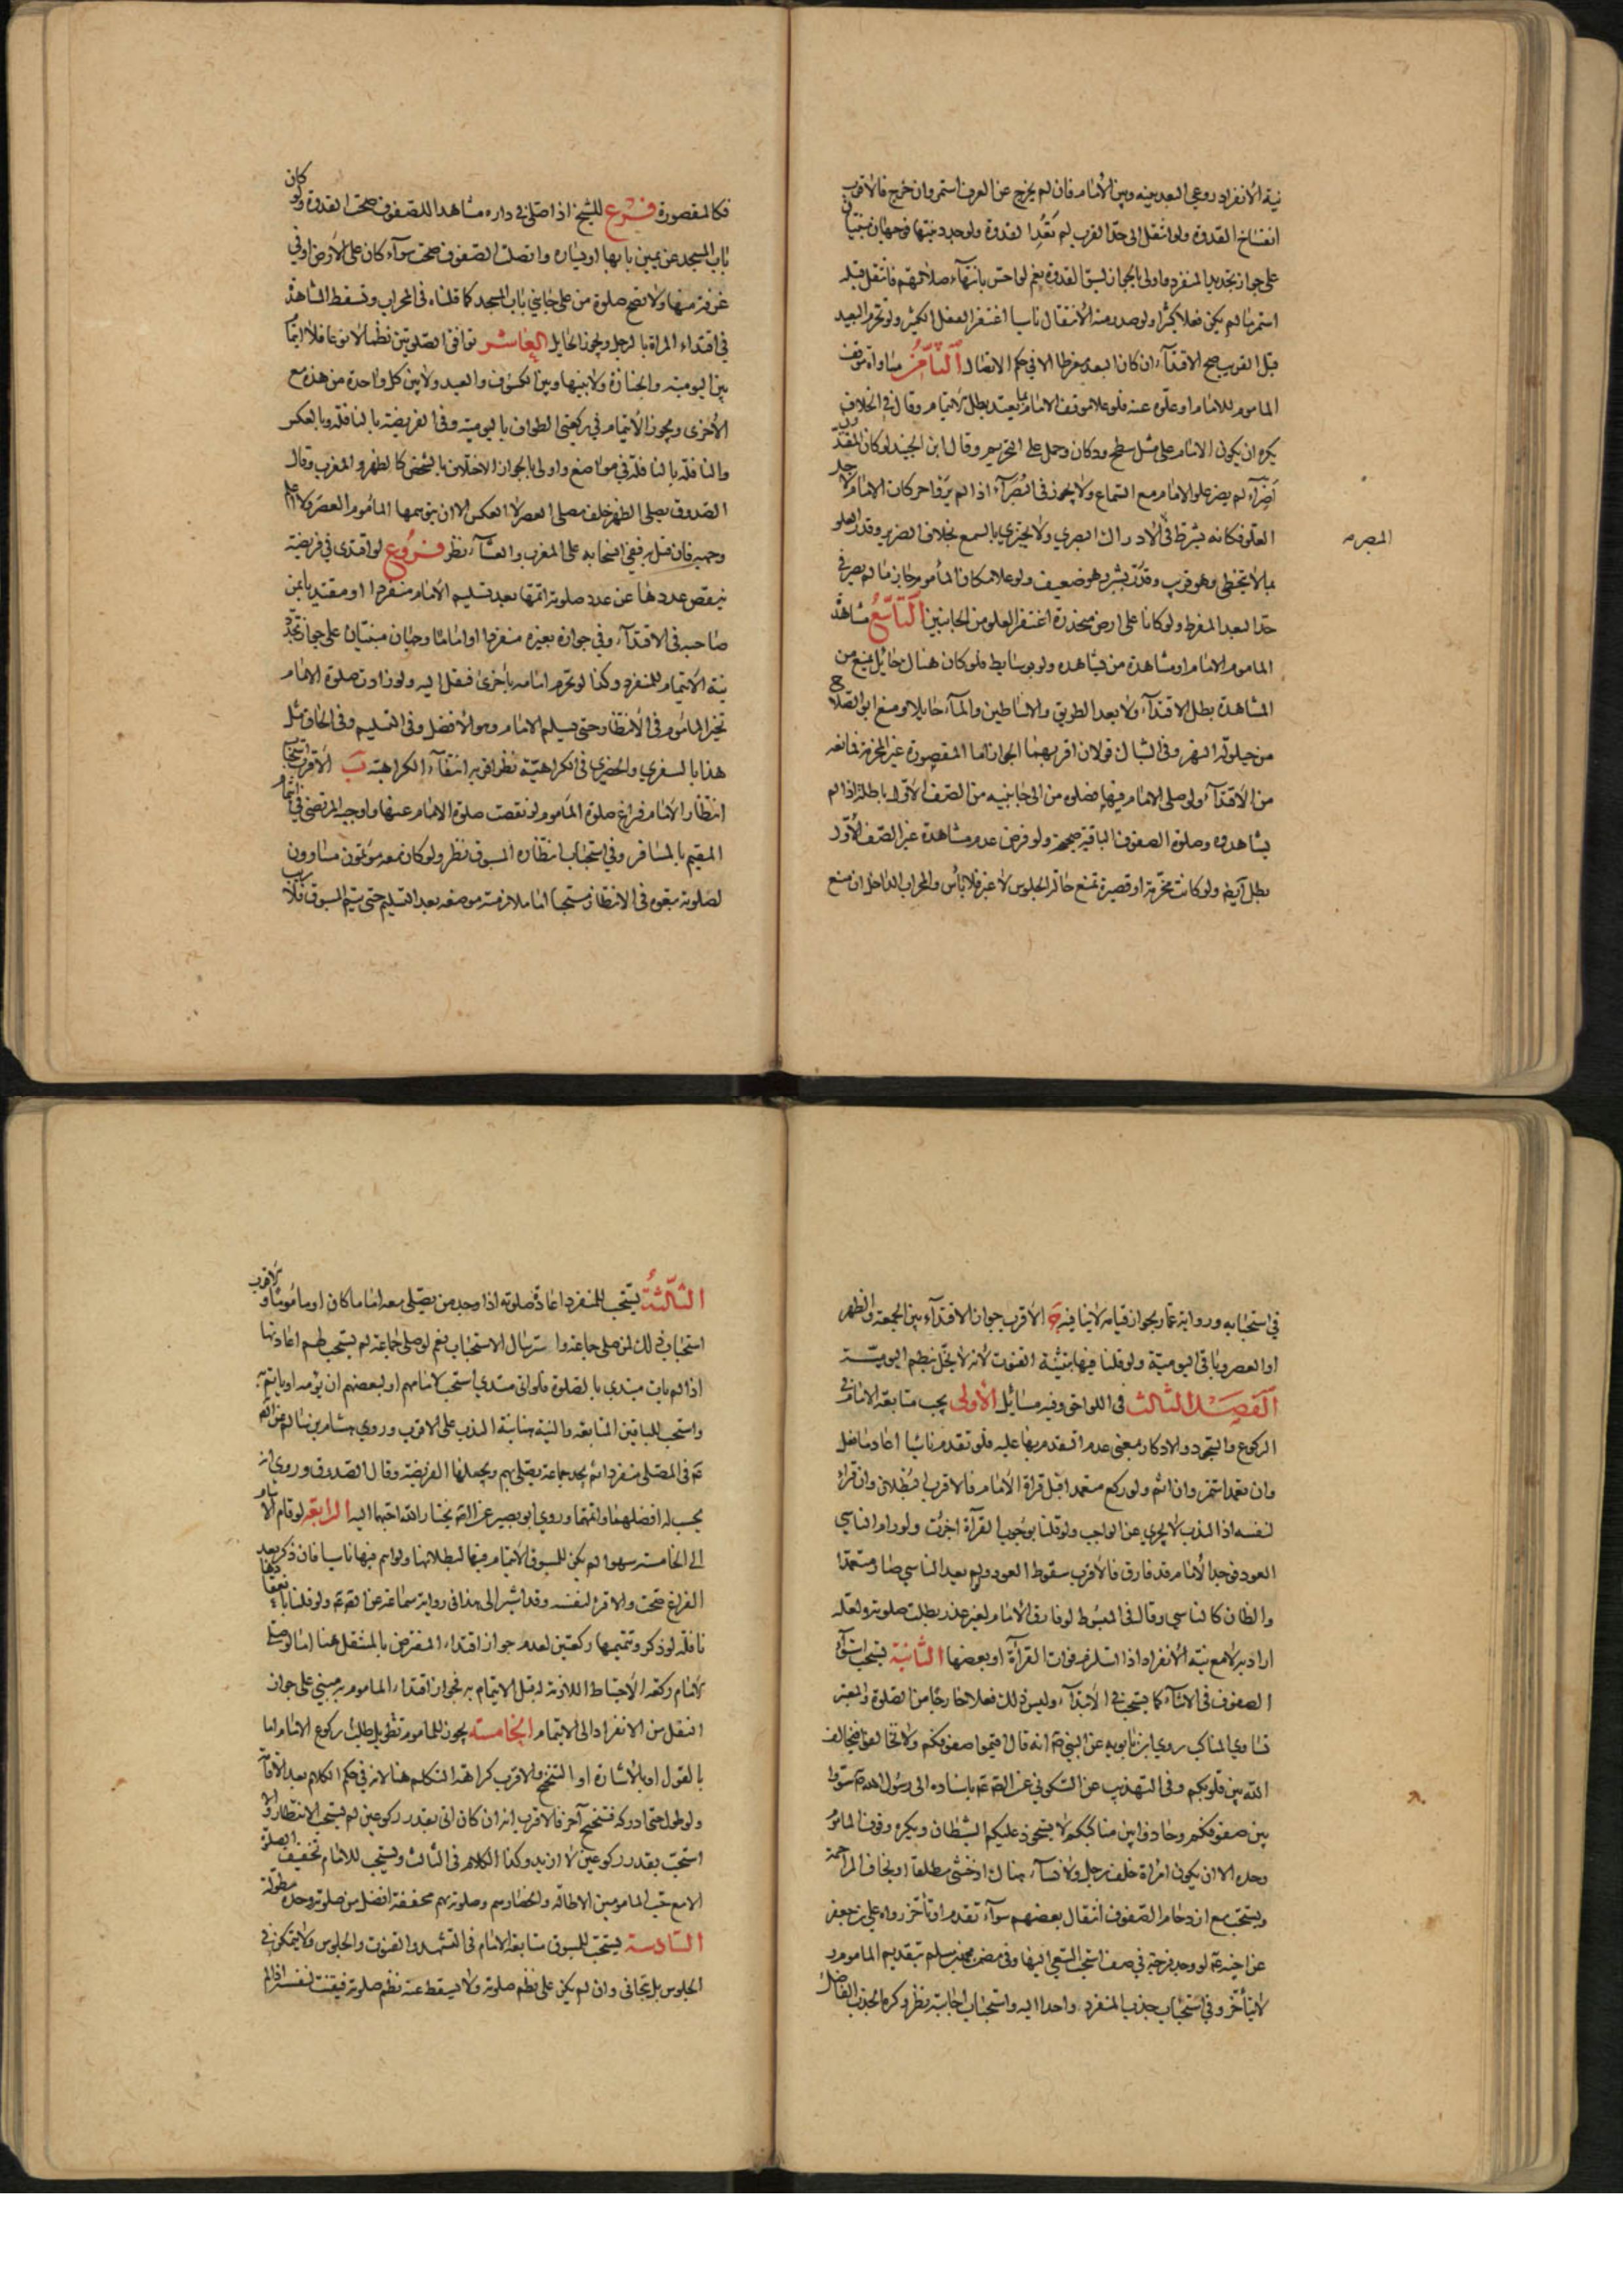 نية الانفراد روعي البعد بينه وبين الامام فان لم يخرج عن العرف استمر وان خرج فالاقرب
انفساخ القدوة ولو انتقل الى حد القرب لم تعد القدوة ولو جدد نيتها فوجهان مبنيان
على جواز تجديد المنفرد واولى بالجواز لسبق القدوة نعم لو احس بانتهاء صلاتهم فانتقل قبله
استمر ما لم يكن فعلا كثيرا ولو صدر منه الانتقال ناسيا اغتفر الفعل الكثير ولو تحرم البعيد
قبل القريب صح الاقتداء وان كان البعد مفرطا لانه في حكم الاتصال الثامن مساواة موقف
الماموم للامام او علوه عنه فلو علا موقف الامام بما يعتد بطل الايتمام وقال في الخلاف
يكره ان يكون الامام على مثل سطح ودكان وحمل على التحريم وقال ابن الجنيد لو كان المقتدون
اضراء لم يضر علو الامام مع السماع ولا يجوز في البصراء اذا لم يروا حركات الامام لاجل
العلو فكانه يشترط في الادراك البصري ولا يجتزي بالسمع بخلاف الضرير وقدر العلو
المبصر
بما لا يتخطى وهو قريب وقدر بشبر وهو ضعيف ولو علا مكان المأموم جاز ما لم يصر في
حد البعد المفرط ولو كانا على ارض منحدرة اغتفر العلو من الجانبين التاسع مشاهدة
الماموم الامام او مشاهدة من يشاهده ولو بوسايط فلو كان هناك حائل يمنع من
المشاهدة بطل الاقتداء ولا يعد الطريق والاساطين والماء حايلا ومنع ابو الصلاح
من حيلولة النهر وفي الشباك قولان اقربهما الجواز اما المقصورة غير المخرمة فمانعه
من الاقتداء ولو صلى الامام فيها فصلوة من الى جانبيه من الصف الاول باطلة اذا لم
يشاهدوه وصلوة الصفوف الباقية صحيحة ولو فرض عدم مشاهدة غير الصف الاول
بطل ايضا ولو كانت مخرمة او قصيرة تمنع حالة الجلوس لا غير فلا بأس والمحراب الداخل ان منع
فكالمقصورة فرع للشيخ اذا صلى في داره مشاهدا للصفوف صحت القدوة ولو كان
باب المسجد عن يمين بابها او يساره واتصلت الصفوف صحت سواء كان على الارض او في
غرفة منها ولا تصح صلوة من على جانبي باب المسجد كما قلناه في المحراب وتسقط المشاهدة
في اقتداء المراة بالرجل ويجوز الحايل العاشر توافق الصلوتين نظما لا نوعا فلا ايتمام
بين اليومية والجنازة ولا بينها وبين الكسوف والعيد ولا بين كل واحدة من هذه مع
الاخرى ويجوز الايتمام في ركعتي الطواف باليومية وفي الفريضة بالنافلة وبالعكس
والنافلة بالنافلة في مواضع واولى بالجواز الاختلاف بالشخص كالظهر والمغرب وقال
الصدوق يصلى الظهر خلف مصلى العصر لا العكس الا ان يتوهمها الماموم العصر ولا اعلم
وجهه فان قيل به ففي انسحابه على المغرب والعشاء نظر فروع لو اقتدى في فريضة
ينقص عددها عن عدد صلوته اتمها بعد تسليم الامام منفردا او مقتديا بمن
صاحبه في الاقتداء وفي جوازه بغيره منفردا او اماما وجهان مبنيان على جواز تجدد
نية الايتمام للمنفرد وكذا لو تحرم امامه باخرى فنقل اليه ولو زادت صلوة الامام
تخير الماموم في الانتظار حتى يسلم الامام وهو الافضل وفي التسليم وفي الحاق مثل
هذا بالسفري والحضري في الكراهية نظر اقربه انتفاء الكراهية ب الاقرب استحباب
انتظار الامام فراغ صلوة الماموم لو نقصت صلوة الامام عنها واوجبه المرتضى في ايتمام
المقيم بالمسافر وفي استحباب انتظاره المسبوق نظر ولو كان معه مؤتمون مساوون
لصلوته تبعوه في الانتظار مستحبا اما ملازمته موضعه بعد التسليم حتى يتم المسبوق فلا ريب
في استحبابه ورواية عمار بجواز قيامه لا ينافيه ج الاقرب جواز الاقتداء بين الجمعة والظهر
او العصر وباقي اليومية ولو قلنا فيها بتثنية القنوت لانه لا يخل بنظم اليومية
الفصل الثالث في اللواحق وفيه مسائل الاولى يجب متابعة الامام في
الركوع والسجود والاذكار بمعنى عدم التقدم بها عليه فلو تقدم ناسيا اعاد ما فعل
وان تعمد استمر وان اثم ولو ركع متعمدا قبل قراءة الامام فالاقرب البطلان وان قرا
لنفسه اذ الندب لا يجزي عن الواجب ولو قلنا بوجوب القرآة اجزت ولو رام الناسي
العود فوجد الامام قد فارق فالاقرب سقوط العود ولو لم يعد الناسي صار متعمدا
والظان كالناسي وقال في المبسوط لو فارق الامام لغير عذر بطلت صلوته ولعله
اراد به لا مع نية الانفراد اذا استلزم فوات القراءة او بعضها الثانية يستحب استواء
الصفوف في الاثناء كما يستحب في الابتداء وليس ذلك فعلا خارجا من الصلوة والمعتبر
تساوي المناكب روى ابن بابويه عن النبي ص انه قال اقيموا صفوفكم ولا تخالفوا فيخالف
الله بين قلوبكم وفي التهذيب عن السكوني عن الصادق ع باسناده الى رسول الله ص سووا
بين صفوفكم وحاذوا بين مناكبكم لا يستحوذ عليكم الشيطان ويكره وقوف الماموم
وحده الا ان يكون امراة خلف رجل ولا نساء هناك او خنثى مطلقا او يخاف المزاحمة
ويستحب مع ازدحام الصفوف انتقال بعضهم سواء تقدم او تأخر رواه علي بن جعفر
عن اخيه ع لو وجد فرجة في صف استحب السعي اليها وفي مضمر محمد بن مسلم بتقديم الماموم و
لا يتأخر وفي استحباب جذب المنفرد واحدا اليه واستحباب اجابته نظر وكره الجذب الفاضل
الثالثة يستحب للمنفرد اعادة صلوته اذا وجد من يصلي معه اماما كان او ماموما والاقرب
استحباب ذلك لمن صلى جماعة واسترسال الاستحباب نعم لو صلى جماعة لم يستحب لهم اعادتها
اذا لم يات مبتدي بالصلوة فلو اتى مبتدي استحب لامامهم او لبعضهم ان يؤمه او ياتم به
واستحب للباقين المتابعة والنية هنا نية الندب على الاقرب وروى هشام بن سالم عن الصادق
ع في المصلى منفردا ثم يجد جماعة يصلي بهم ويجعلها الفريضة وقال الصدوق وروي انه
يحسب له افضلهما واتمهما وروى ابو بصير عن الصادق ع يختار الله احبهما اليه الرابعة لو قام الامام
الى الخامسة سهوا لم يكن للمسبوق الايتمام فيها لبطلانها ولو ائتم فيها ناسيا فان ذكر بعد
الفراغ صحت والا قرأ لنفسه وقد اشير الى هذا في رواية سماعة عن الصادق ع ولو قلنا بانعقادها
نافلة لو ذكر وتتميمها ركعتين لعدم جواز اقتداء المفترض بالمتنفل هنا اما لو صلى
الامام ركعة الاحتياط اللازمة له قبل الايتمام به فجواز اقتداء الماموم به مبني على جواز
النقل من الانفراد الى الايتمام الخامسة يجوز للماموم تطويل ركوع الامام اما
بالقول او بالاشارة او التنحنح والاقرب كراهة التكلم هنا لانه في حكم الكلام بعد الاقامة
ولو طول حتى ادركه فتنحنح آخر فالاقرب انه ان كان اتى بقدر ركوعين لم يستحب الانتظار والا
استحب بقدر ركوعين لا ازيد وكذا الكلام في الثالث ويستحب للامام تخفيف الصلوة
الا مع حب المامومين الاطالة وانحصارهم وصلوته بهم مخففة افضل من صلوته وحده مطولة
السادسة يستحب للمسبوق متابعة الامام في التشهد والقنوت والجلوس ولا يتمكن في
الجلوس بل يتجافى وان لم يكن على نظم صلوته ولا يسقط عنه نظم صلوته فيقنت لنفسه اذا لم